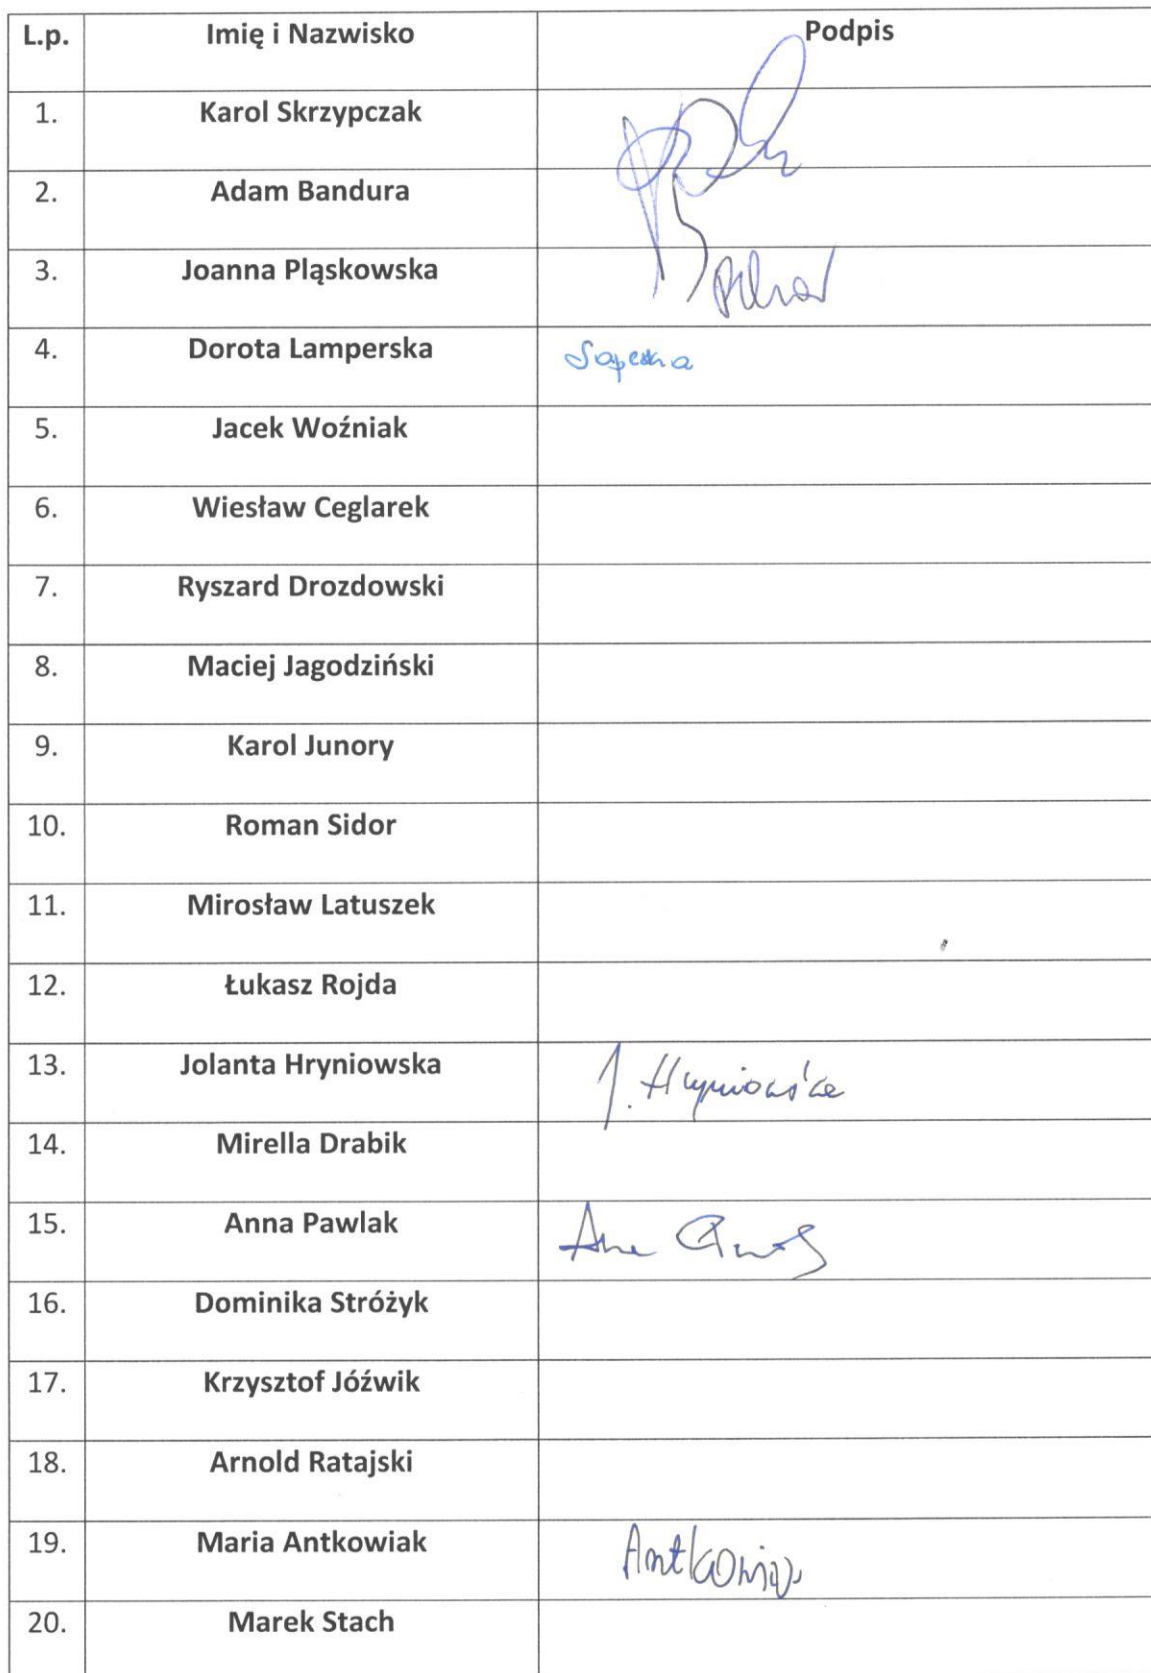 L.p. Imię i Nazwisko Podpis
1. Karol Skrzypczak
2. Adam Bandura
3. Joanna Pląskowska
4. Dorota Lamperska
5. Jacek Woźniak
6. Wiesław Ceglarek
7. Ryszard Drozdowski
8. Maciej Jagodziński
9. Karol Junory
10. Roman Sidor
11. Mirosław Latuszek
12. Łukasz Rojda
13. Jolanta Hryniowska J. Hryniowska
14. Mirella Drabik
15. Anna Pawlak
16. Dominika Stróżyk
17. Krzysztof Jóźwik
18. Arnold Ratajski
19. Maria Antkowiak Antkowiak
20. Marek Stach